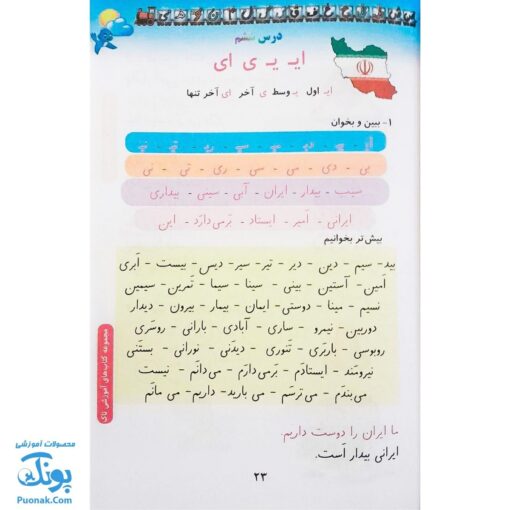 درس ششم
ایـ یـ ی ای
ایـ اول یـ وسط ی آخر ای آخر تنها
۱- ببین و بخوان
بی - دی - می - سی - ری - تی - نی
سیب - بیدار - ایران - آبی - سینی - بیداری
ایرانی - اَمیر - ایستاد - بَرمی‌دارَد - این
بیش‌تر بخوانیم
بید - سیم - دین - دیر - تیر - سیر - دیس - بیست - اَبری
اَمین - آستین - بینی - سینا - سیما - تَمرین - سیمین
نَسیم - مینا - دوستی - ایمان - بیمار - بیرون - دیدار
دوربین - نیمرو - ساری - آبادی - بارانی - روسَری
روبوسی - باربَری - تَنوری - دیدَنی - نورانی - بَستَنی
نیرومَند - ایستادَم - بَرمی‌دارَم - می‌دانَم - نیست
می‌بَندَم - می‌تَرسَم - می بارید - داریم - می مانَم
ما ایران را دوست داریم.
ایرانی بیدار اَست.
۲۳
مجموعه کتاب‌های آموزشی تاک
محصولات آموزشی
پونک
Puonak.Com